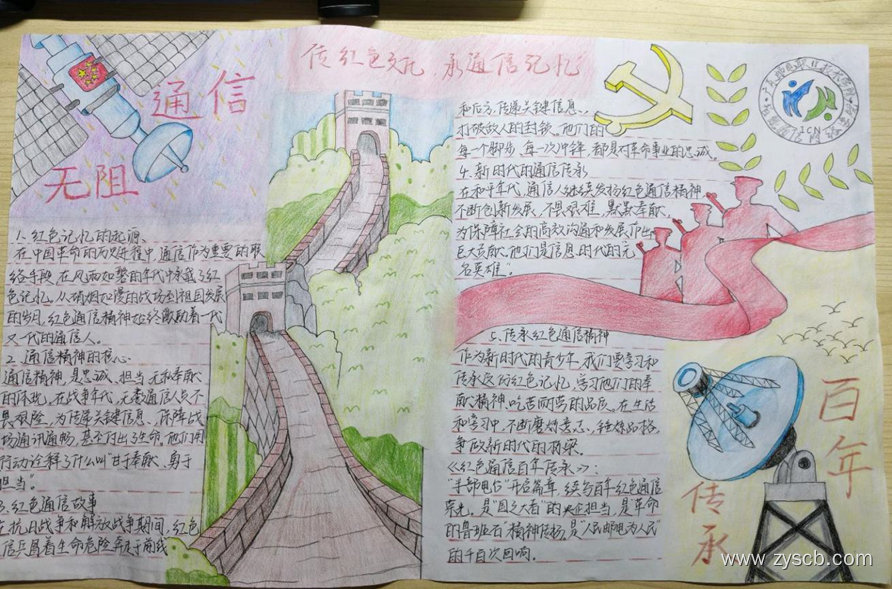 传红色文化 承通信记忆
通信
无阻
1. 红色记忆的起源
在中国革命的历史进程中,通信作为重要的联
络手段,在风雨如磐的年代中承载了红
色记忆。从硝烟弥漫的战场到祖国发展
的岁月,红色通信精神始终激励着一代
又一代的通信人。
2. 通信精神的核心
通信精神,是忠诚、担当、无私奉献
的体现。在战争年代,无数通信人员不
畏艰险,为传递关键信息、保障战
场通讯通畅,甚至付出了生命,他们用
行动诠释了什么叫"甘于奉献、勇于
担当"。
3. 红色通信故事
在抗日战争和解放战争期间,红色
通信兵冒着生命危险奔走于前线
和后方,传递关键信息,
打破敌人的封锁。他们的
每一个脚步,每一次冲锋,都是对革命事业的忠诚。
4. 新时代的通信传承
在和平年代,通信人继续发扬红色通信精神,
不断创新发展,不畏艰难,默默奉献,
为保障社会的高效沟通和发展作出
巨大贡献,他们是信息时代的无
名英雄。
5. 传承红色通信精神
作为新时代的青少年,我们要学习和
传承这份红色记忆,学习他们的奉
献精神,吃苦耐劳的品质。在生活
和学习中,不断磨炼意志,锤炼品格,
争做新时代的栋梁。
《红色通信百年传承》:
"半部电台"开启篇章,续写百年红色通信
荣光,是"国之大者"的央企担当,是革命
的鲁班石,精神传扬,是"人民邮电为人民"
的千百次回响。
百年
传承
ICN
www.zyscb.com